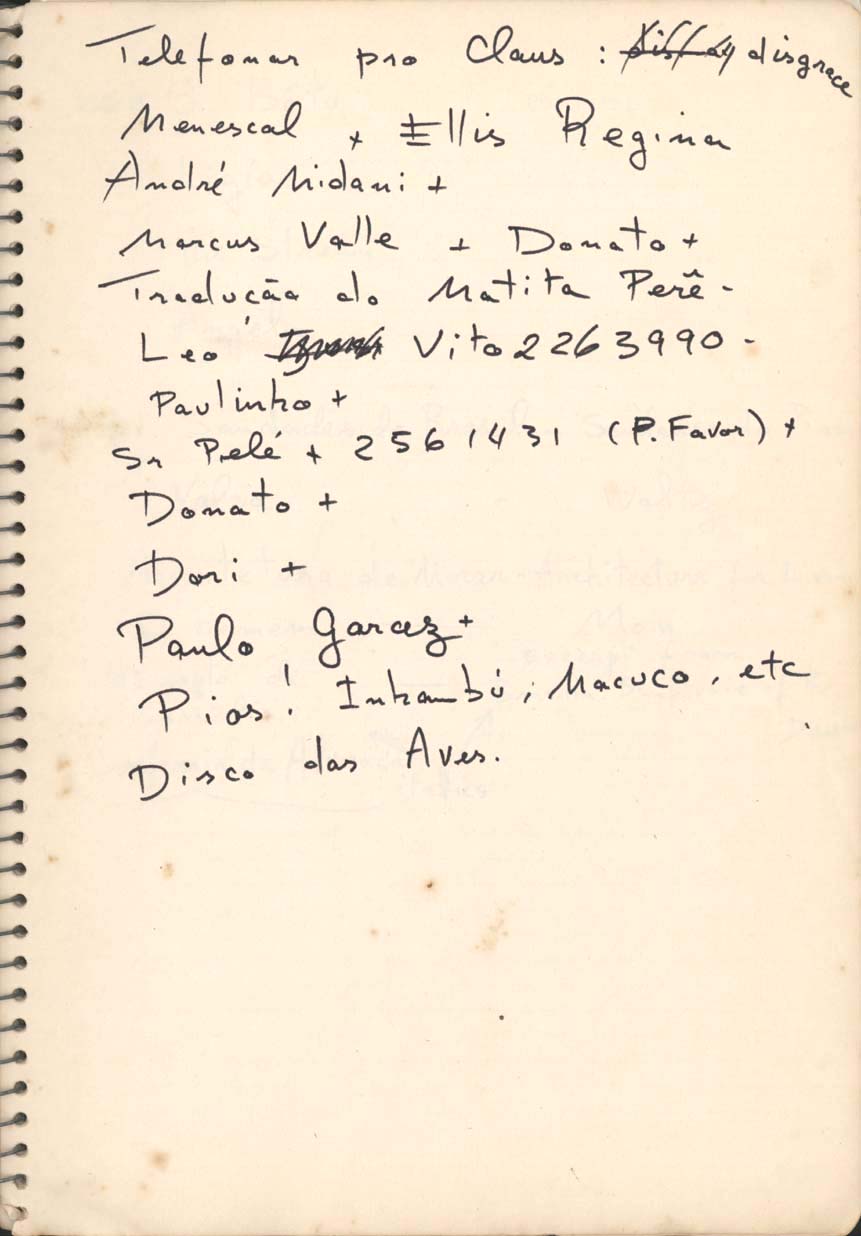 Telefonar pro Claus : disgrace
Menescal + Ellis Regina
André Midani +
Marcus Valle + Donato +
Tradução do Matita Perê -
Leo Vito 2263990 -
Paulinho +
Sr Pelé + 2561431 (P. Favor) +
Donato +
Dori +
Paulo Garcez +
Pios! Inhambú, Macuco, etc
Disco das Aves.